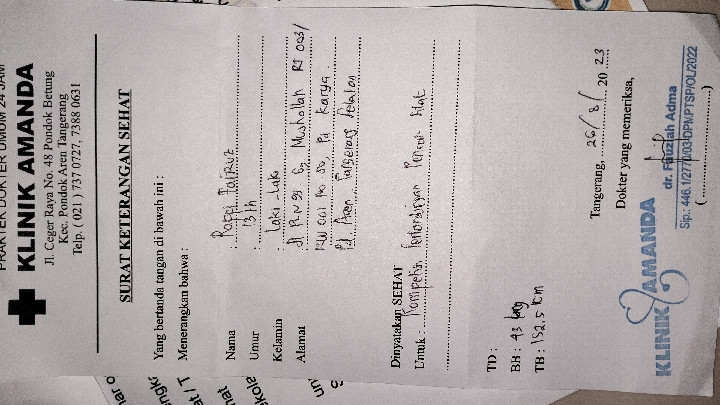 PRAKTER DOKTER UMUM 24 JAM
KLINIK AMANDA
Jl. Ceger Raya No. 48 Pondok Betung
Kec. Pondok Aren Tangerang
Telp. ( 021 ) 737 0727, 7388 0631
SURAT KETERANGAN SEHAT
Yang bertanda tangan di bawah ini :
Menerangkan bahwa :
Nama : Rappi Fairuz
Umur : 13 th
Kelamin : Laki - Laki
Alamat : Jl PLN 91 Mushollah RT 003/
RW 001 No 50, Pd Karya
Pd Aren, Tangerang Selatan
Dinyatakan SEHAT
Untuk : Kompetisi Pencak Silat
TD :
BH : 43 kg
TB : 152,5 cm
Tangerang, 26/8/ 20 23
Dokter yang memeriksa,
KLINIK AMANDA
dr. Fauziah Adma
Sip.: 446.1/277/003-DPMPTSP/OL/2022
(....................)